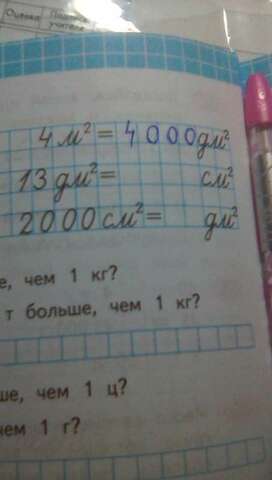 Оценка
учителя
4 м² = 4 000 дм²
13 дм² = см²
2000 см² = дм²
е, чем 1 кг?
т больше, чем 1 кг?
ше, чем 1 ц?
чем 1 г?